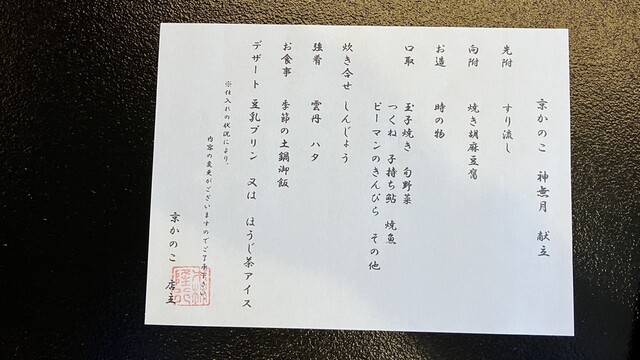 京かのこ 神無月 献立
先附 すり流し
向附 焼き胡麻豆腐
お造 時の物
口取 玉子焼き 旬野菜
つくね 子持ち鮎 焼魚
ピーマンのきんぴら その他
炊き合せ しんじょう
強肴 雲丹 ハタ
お食事 季節の土鍋御飯
デザート 豆乳プリン 又は ほうじ茶アイス
※仕入れの状況により、
内容の変更がございますのでご了承下さい
京かのこ 店主